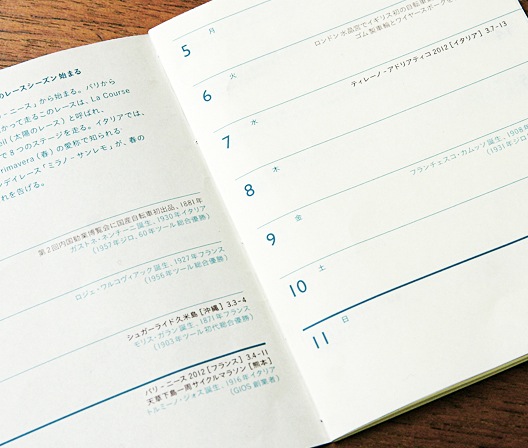 のレースシーズン始まる
・ニース」から始まる。パリから
かって走るこのレースは、La Course
eil（太陽のレース）と呼ばれ、
で8つのステージを走る。イタリアでは、
Primavera（春）の愛称で知られる
ンデイレース「ミラノ - サンレモ」が、春の
れを告げる。
第2回内国勧業博覧会に国産自転車初出品、1881年
ガストネ・ネンチーニ誕生、1930年イタリア
（1957年ジロ、60年ツール総合優勝）
ロジェ・ワルコヴィアック誕生、1927年フランス
（1956年ツール総合優勝）
シュガーライド久米島［沖縄］3.3-4
モリス・ガラン誕生、1871年フランス
（1903年ツール初代総合優勝）
パリ - ニース 2012［フランス］3.4-11
天草下島一周サイクルマラソン［熊本］
トルミーノ・ジオス誕生、1916年イタリア
（GIOS 創業者）
5 月
ロンドン水晶宮でイギリス初の自転車
ゴム製車輪とワイヤースポークを
6 火
ティレーノ - アドリアティコ 2012［イタリア］3.7-13
7 水
8 木
フランチェスコ・カムッソ誕生、1908年
（1931年ジロ
9 金
10 土
11 日